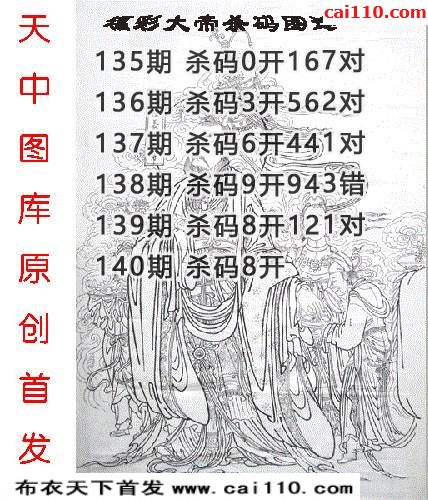 cai110.com
彩大帝杀码图
135期 杀码0开167对
136期 杀码3开562对
137期 杀码6开441对
138期 杀码9开943错
139期 杀码8开121对
140期 杀码8开
天中图库原创首发
布衣天下首发 www.cai110.com